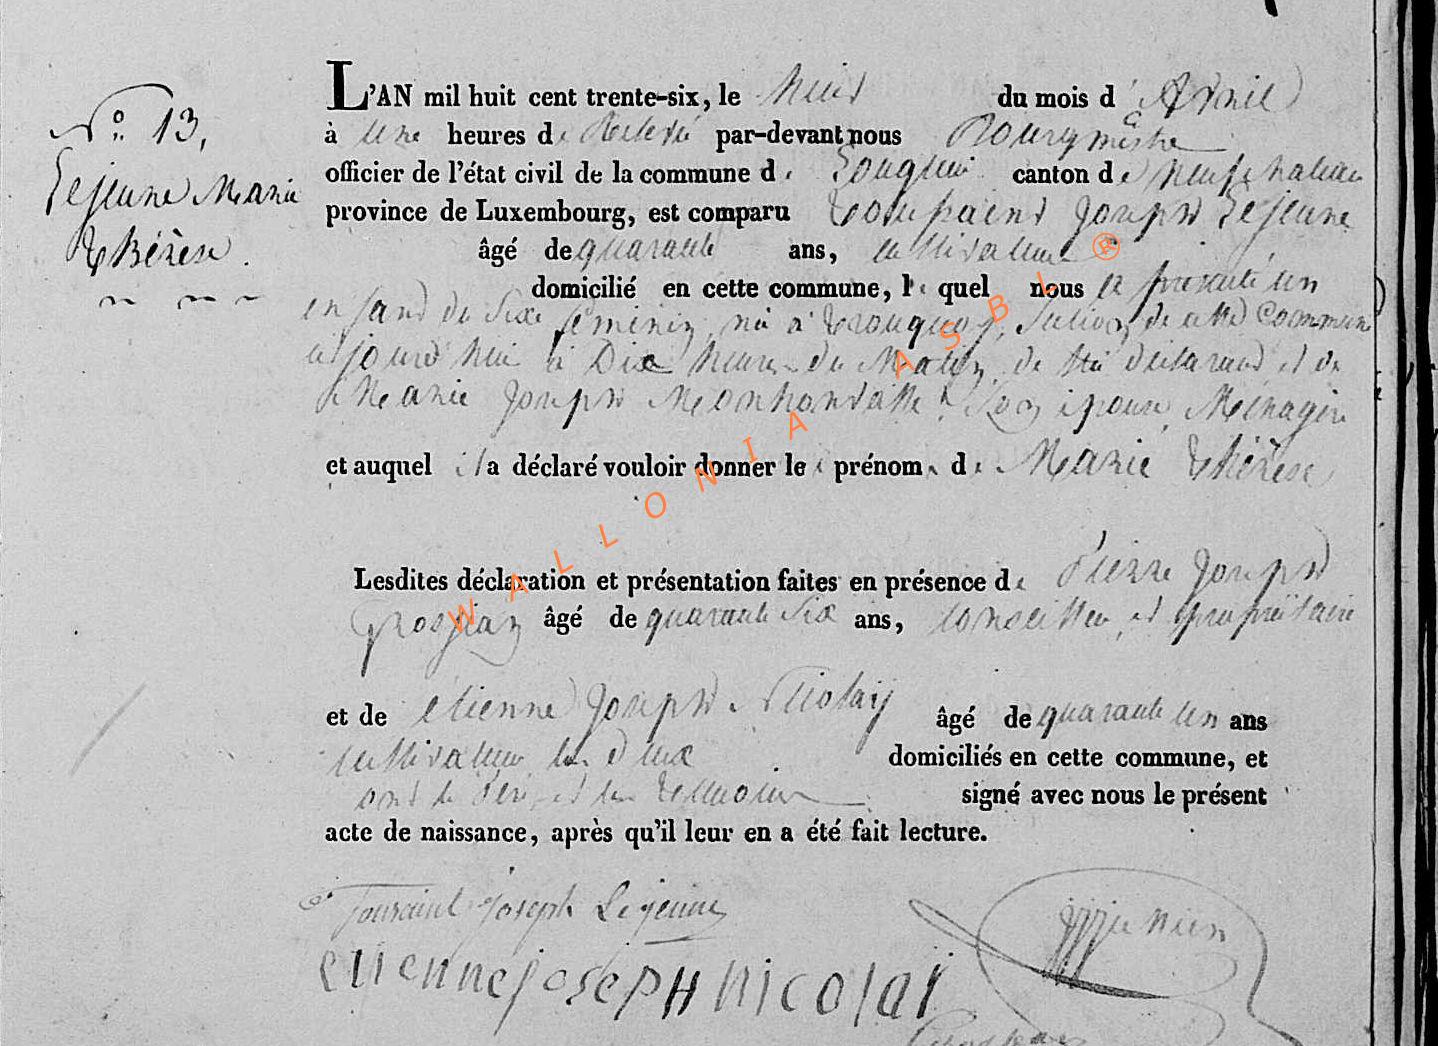 N° 13.
Lejeune Marie
Thérèse.
L'AN mil huit cent trente-six, le huit du mois d' Avril
à une heures de Relevé par-devant nous Bourgmêstre
officier de l'état civil de la commune de canton de neufchateau
province de Luxembourg, est comparu Toussaint Joseph Lejeune
âgé de quarante ans, cultivateur
domicilié en cette commune, lequel nous a presenté un
enfant du Sexe féminin, né à Tronquoy, Section de cette Commune
aujourd'hui à Dix heures du Matin, de lui déclarant et de
Marie Joseph Son épouse, Ménagère
et auquel il a déclaré vouloir donner les prénoms de Marie Thérèse
Lesdites déclaration et présentation faites en présence de Pierre Joseph
Grosjean âgé de quarante Six ans, conseiller et propriétaire
et de etienne Joseph Nicolay âgé de quarante un ans
cultivateur les deux domiciliés en cette commune, et
ont le Père et les Témoins signé avec nous le présent
acte de naissance, après qu'il leur en a été fait lecture.
Toussaint Joseph Lejeune
etienne joseph Nicolai
WALLONIA ASBL ®